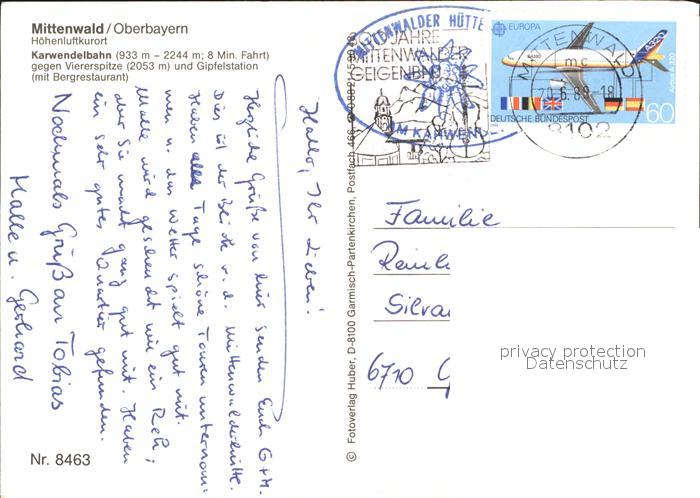 Mittenwald/Oberbayern
Höhenluftkurort
Karwendelbahn (933 m – 2244 m; 8 Min. Fahrt)
gegen Viererspitze (2053 m) und Gipfelstation
(mit Bergrestaurant)
Hallo, Ihr Lieben!
Herzliche Grüße von hier senden Euch G+M.
Dies ist der Blick v. d. Mittenwalderhütte.
Haben alle Tage schöne Touren unternom-
men u. das Wetter spielt gut mit.
Malle wird geschen det wie ein Reh,
aber Sie macht ganz gut mit. Haben
ein sehr gutes Quartier gefunden.
Nochmals Gruß an Tobias
Malle u. Gerhard
Nr. 8463
© Fotoverlag Huber, D-8100 Garmisch-Partenkirchen, Postfach 466
MITTENWALDER HÜTTE
IM KARWENDEL
JAHRE
MITTENWALDER
GEIGENBAU
MITTENWALD
mc
20.6.89-18
8102
EUROPA
A320
Airbus A320
DEUTSCHE BUNDESPOST
60
Familie
Reinh
Silva
6710
privacy protection
Datenschutz